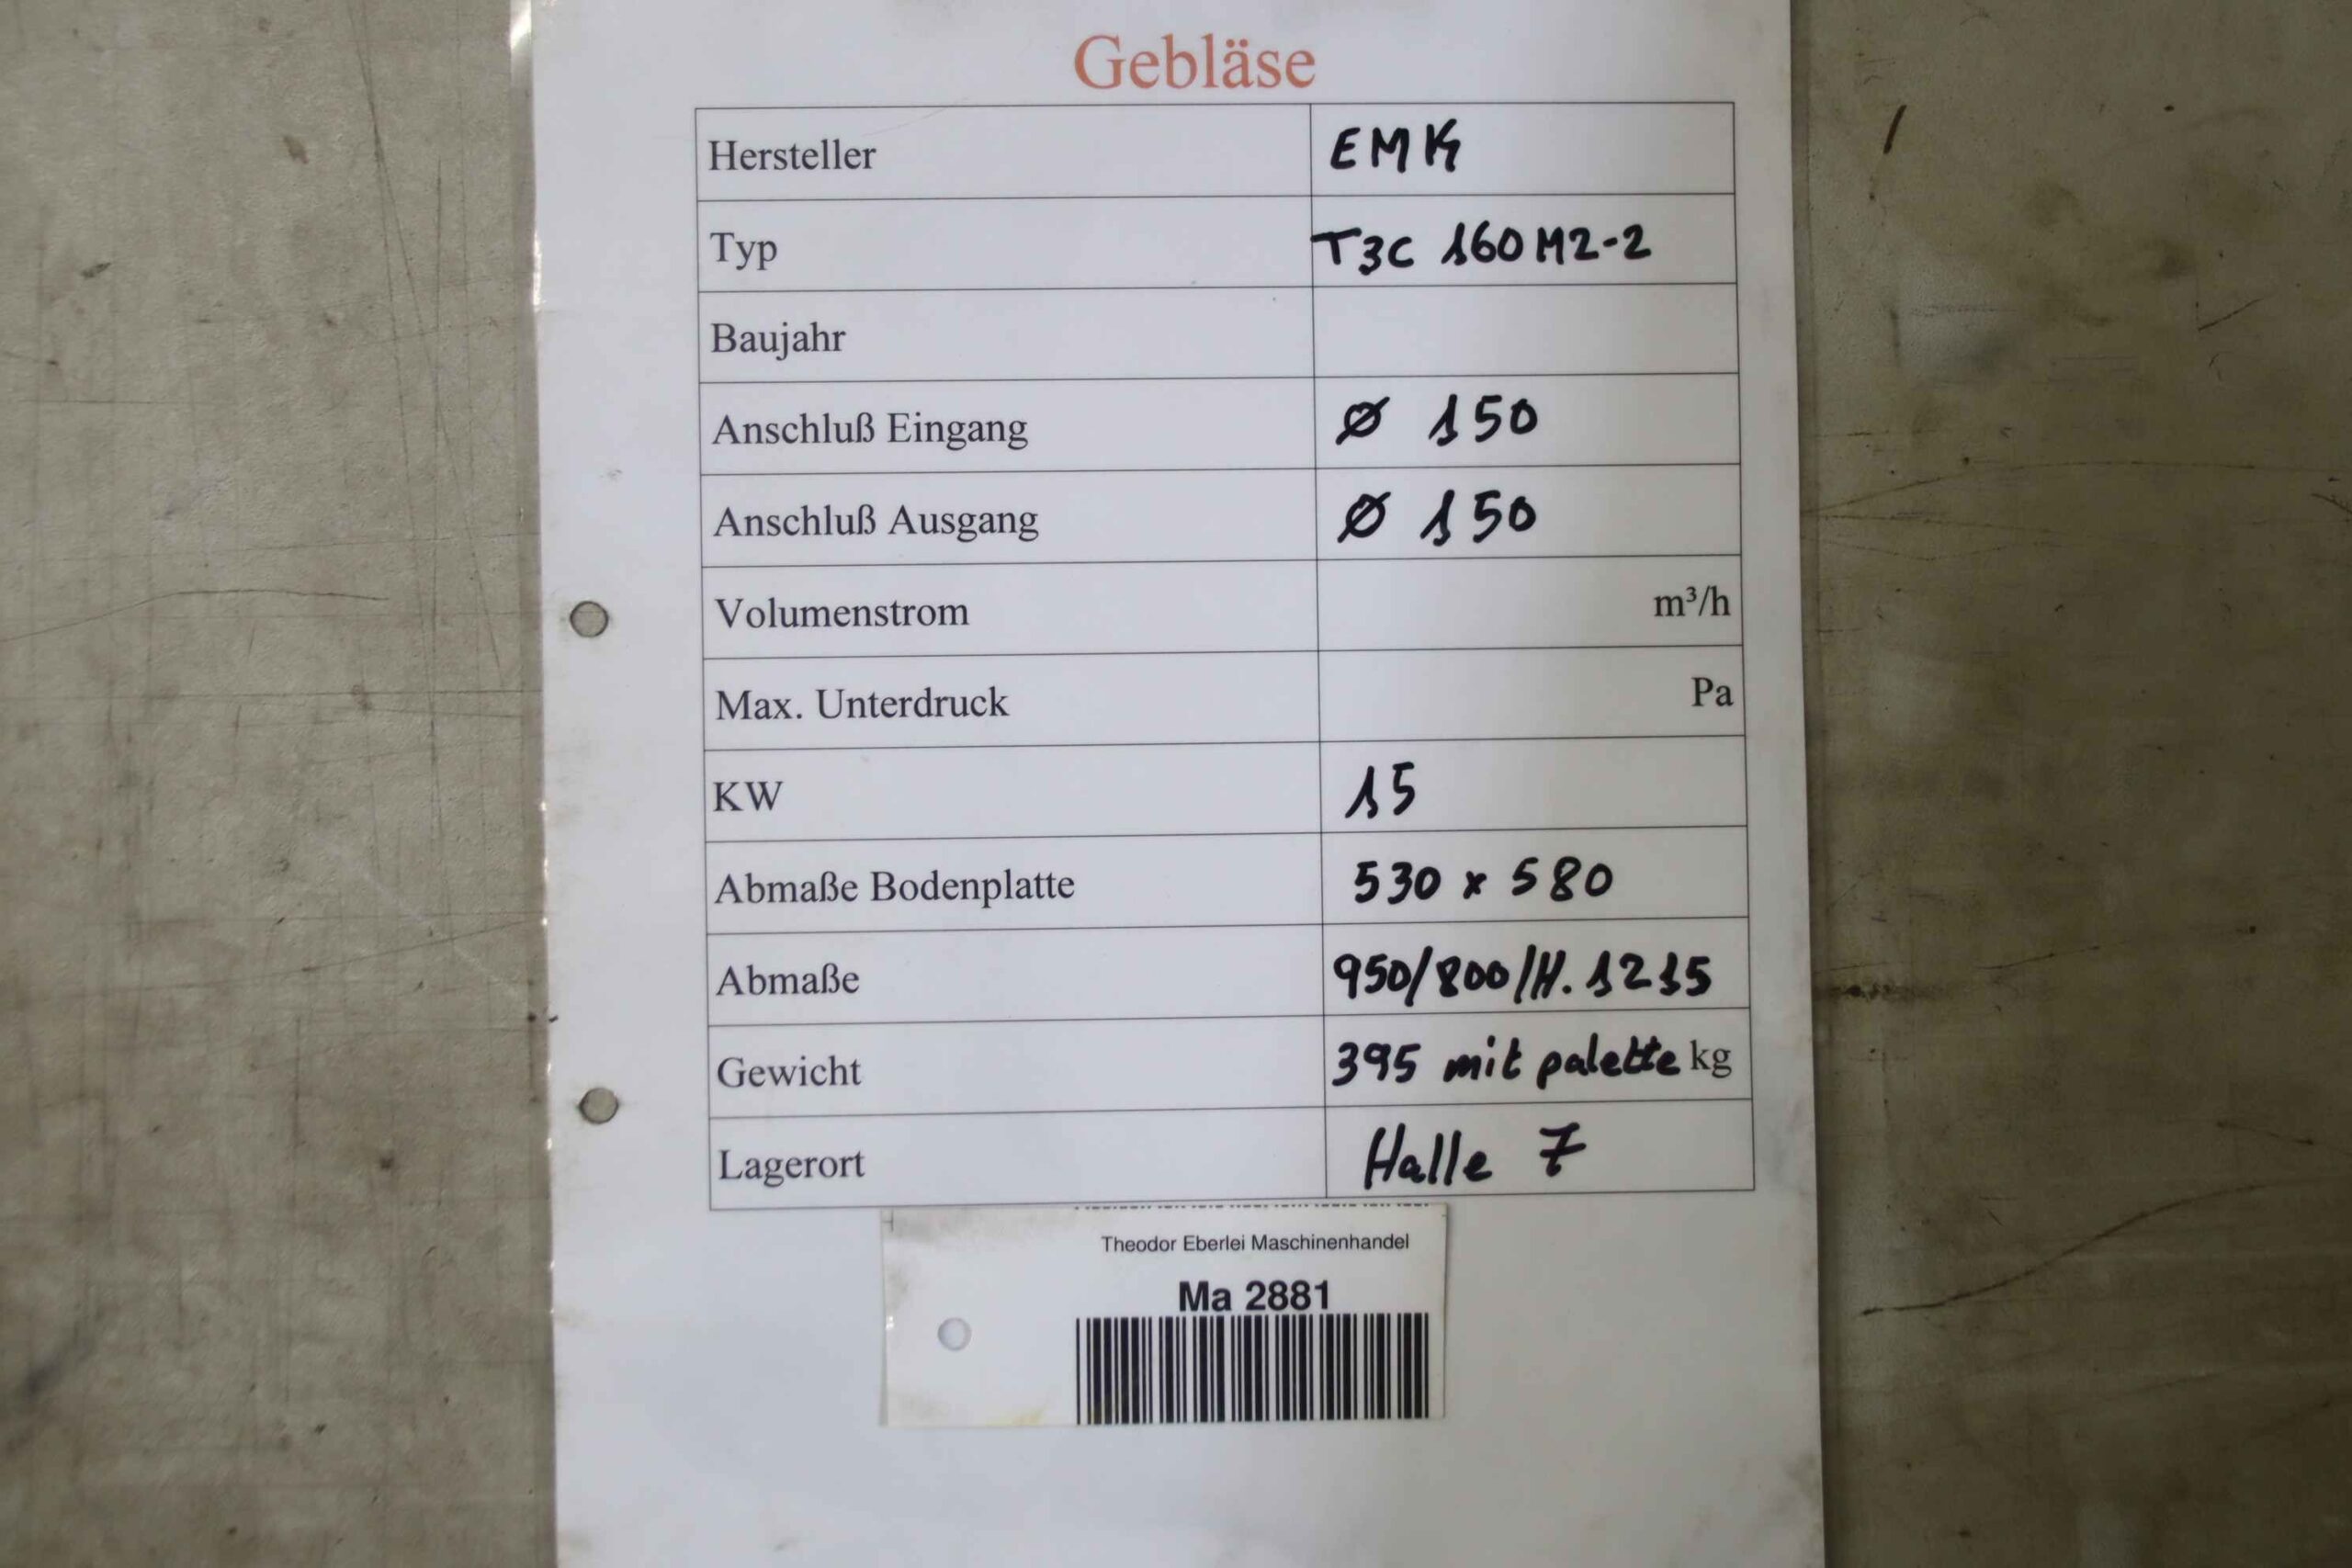 Gebläse
Hersteller EMK
Typ T3C 160M2-2
Baujahr
Anschluß Eingang ø 150
Anschluß Ausgang ø 150
Volumenstrom m³/h
Max. Unterdruck Pa
KW 15
Abmaße Bodenplatte 530 x 580
Abmaße 950/800/H. 1215
Gewicht 395 mit palette kg
Lagerort Halle 7
Theodor Eberlei Maschinenhandel
Ma 2881